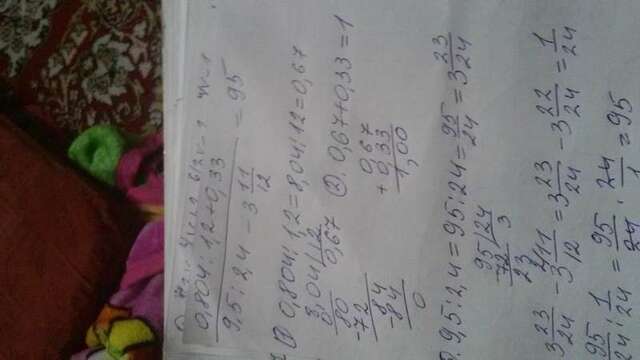 0,804:1,2+0,33
9,5:2,4-3 11/12 = 95
① 0,804:1,2=8,04:12=0,67
8,04|12
0,67
80
-72
84
-84
0
② 0,67+0,33=1
0,67
+0,33
1,00
9,5:2,4=95:24=95/24=3 23/24
95|24
72 3
23
3 23/24-3 11/12=3 23/24-3 22/24=1/24
95/24:1/24=95/24·24/1=95